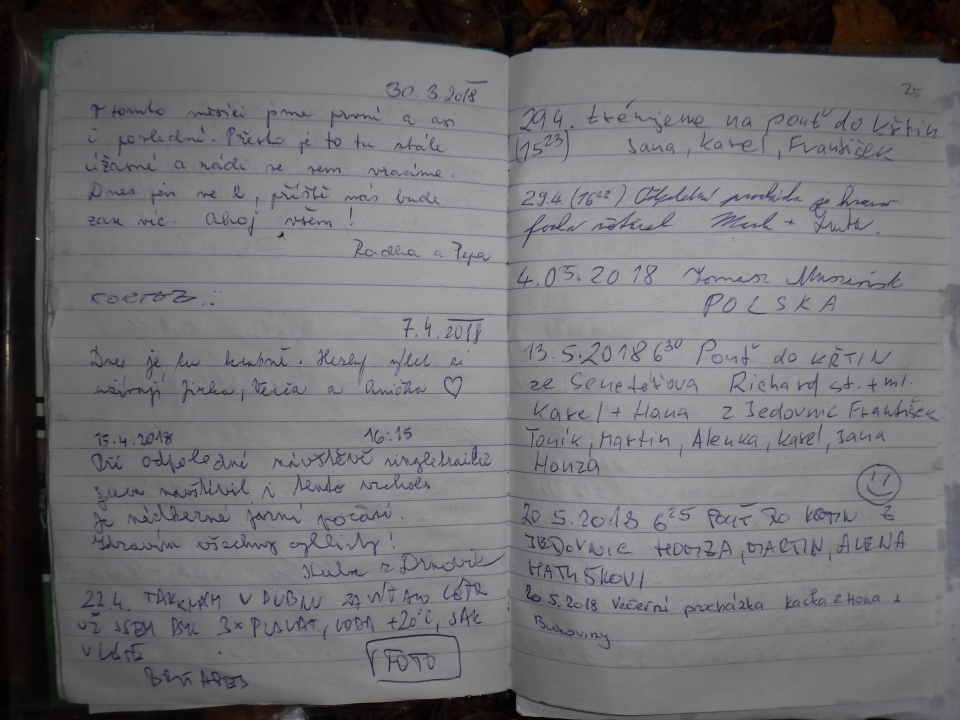 30.3.2018
V tomto měsíci jsme první a asi
i poslední. Přesto je to tu stále
úžasné a rádi se sem vracíme.
Dnes jen ve 2, příště nás bude
zas víc. Ahoj všem!
Radka a Pepa
7.4.2018
Dnes je tu krásně. Hezký výlet si
užívají Jirka, Verča a Anička ♡
15.4.2018 16:15
Při odpolední návštěvě singletrailů
jsem navštívil i tento vrchol.
Je nádherné jarní počasí.
Zdravím všechny cyklisty!
Kuba z Drnovic
22.4. TAK NÁM V DUBNU ZAVÍTALO LÉTO
UŽ JSEM BYL 3x PLAVAT, VODA +20°C, JAK
V LÉTĚ
FOTO
25
29.4. trénujeme na pouť do Křtin
(15 23) Jana, Karel, František
29.4. (16 22) Odpolední procházka je
Mark +
4.05.2018 Tomasz
POLSKA
13.5.2018 6 30 Pouť do KŘTIN
ze Senetářova Richard st. + ml.
Karel + Hana z Jedovnic František
Toník, Martin, Alenka, Karel, Jana
Honza
20.5.2018 6 25 POUŤ DO KŘTIN Z
JEDOVNIC HONZA, MARTIN, ALENA
MATUŠKOVI
20.5.2018 Večerní procházka Kačka a Hona z
Bukoviny